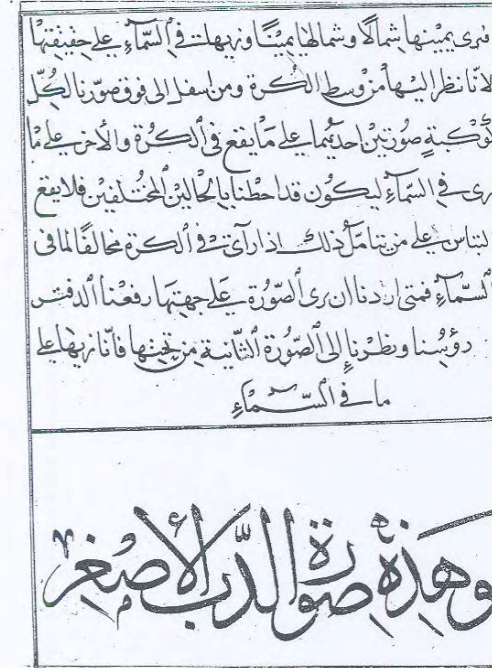 فنرى يمينها شمالًا وشمالها يمينًا ونريها في السمآء على حقيقتها
لانّا ننظر اليها من وسط الكرة ومن اسفل الى فوق صوّرنا لكلّ
كوكبة صورتين احديهما على ما يقع في الكرة والأخرى على ما
نرى في السمآء ليكون قد احطنا بالحالين المختلفين فلا يقع
التباس على من يتامّل ذلك اذا رأى في الكرة مخالفًا لما في
السمآء فمتى اردنا ان نرى الصّورة على جهتها رفعنا الدفتر
رؤسنا ونظرنا إلى الصّورة الثانية من تحتها فانّا نريها على
ما في السمآء
وهذه صورة الدب الأصغر